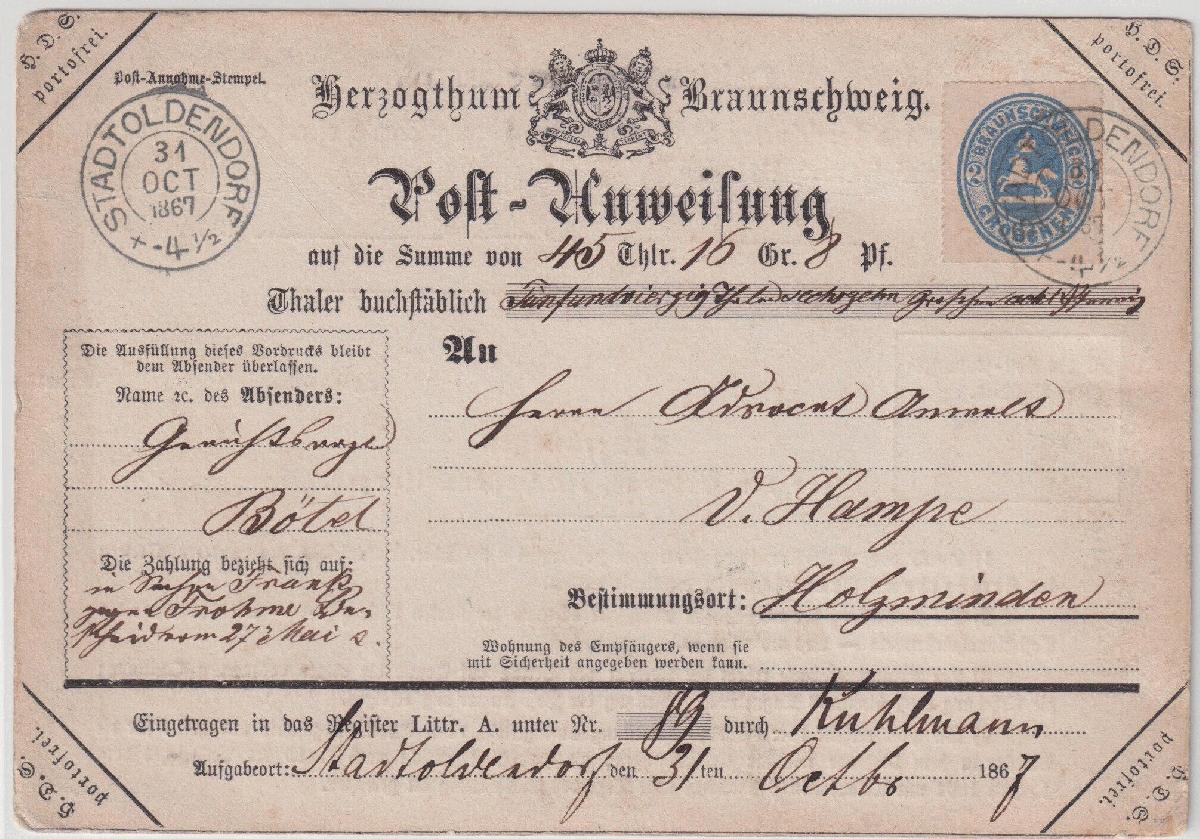 H. D. S.
portofrei.
H. D. S.
portofrei.
Post-Annahme-Stempel.
STADTOLDENDORF
31
OCT
1867
+ -4 ½
Herzogthum Braunschweig.
BRAUNSCHWEIG
2 2
GROSCHEN
DENDORF
-4 ½
Post-Anweisung
auf die Summe von 45 Thlr. 16 Gr. 8 Pf.
Thaler buchstäblich Fünfundvierzig Thl. und sechszehn Groschen acht Pfennig
Die Ausfüllung dieses Vordrucks bleibt
dem Absender überlassen.
Name ꝛc. des Absenders:
Gerichtsvogt
Bötel
Die Zahlung bezieht sich auf:
in Sachen Frank
gegen Frohme Be-
scheid vom 27. Mai c.
An
Herrn Advocat Anwalt
V. Hampe
Bestimmungsort: Holzminden
Wohnung des Empfängers, wenn sie
mit Sicherheit angegeben werden kann.
Eingetragen in das Register Littr. A. unter Nr. 89 durch Kuhlmann
Aufgabeort: Stadtoldendorf den 31 ten Octbr 1867
H. D. S.
portofrei.
H. D. S.
portofrei.